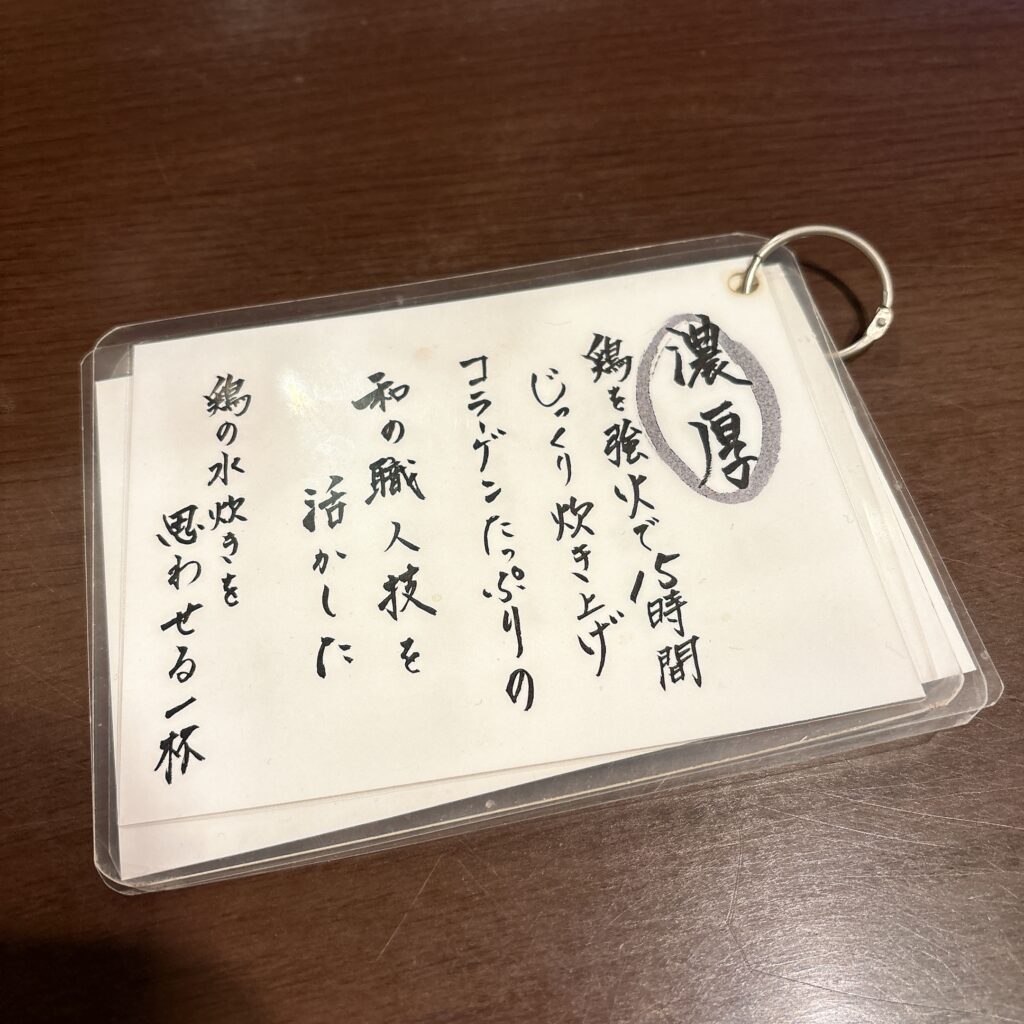 濃厚
鶏を強火で15時間
じっくり炊き上げ
コラーゲンたっぷりの
和の職人技を
活かした
鶏の水炊きを
思わせる一杯